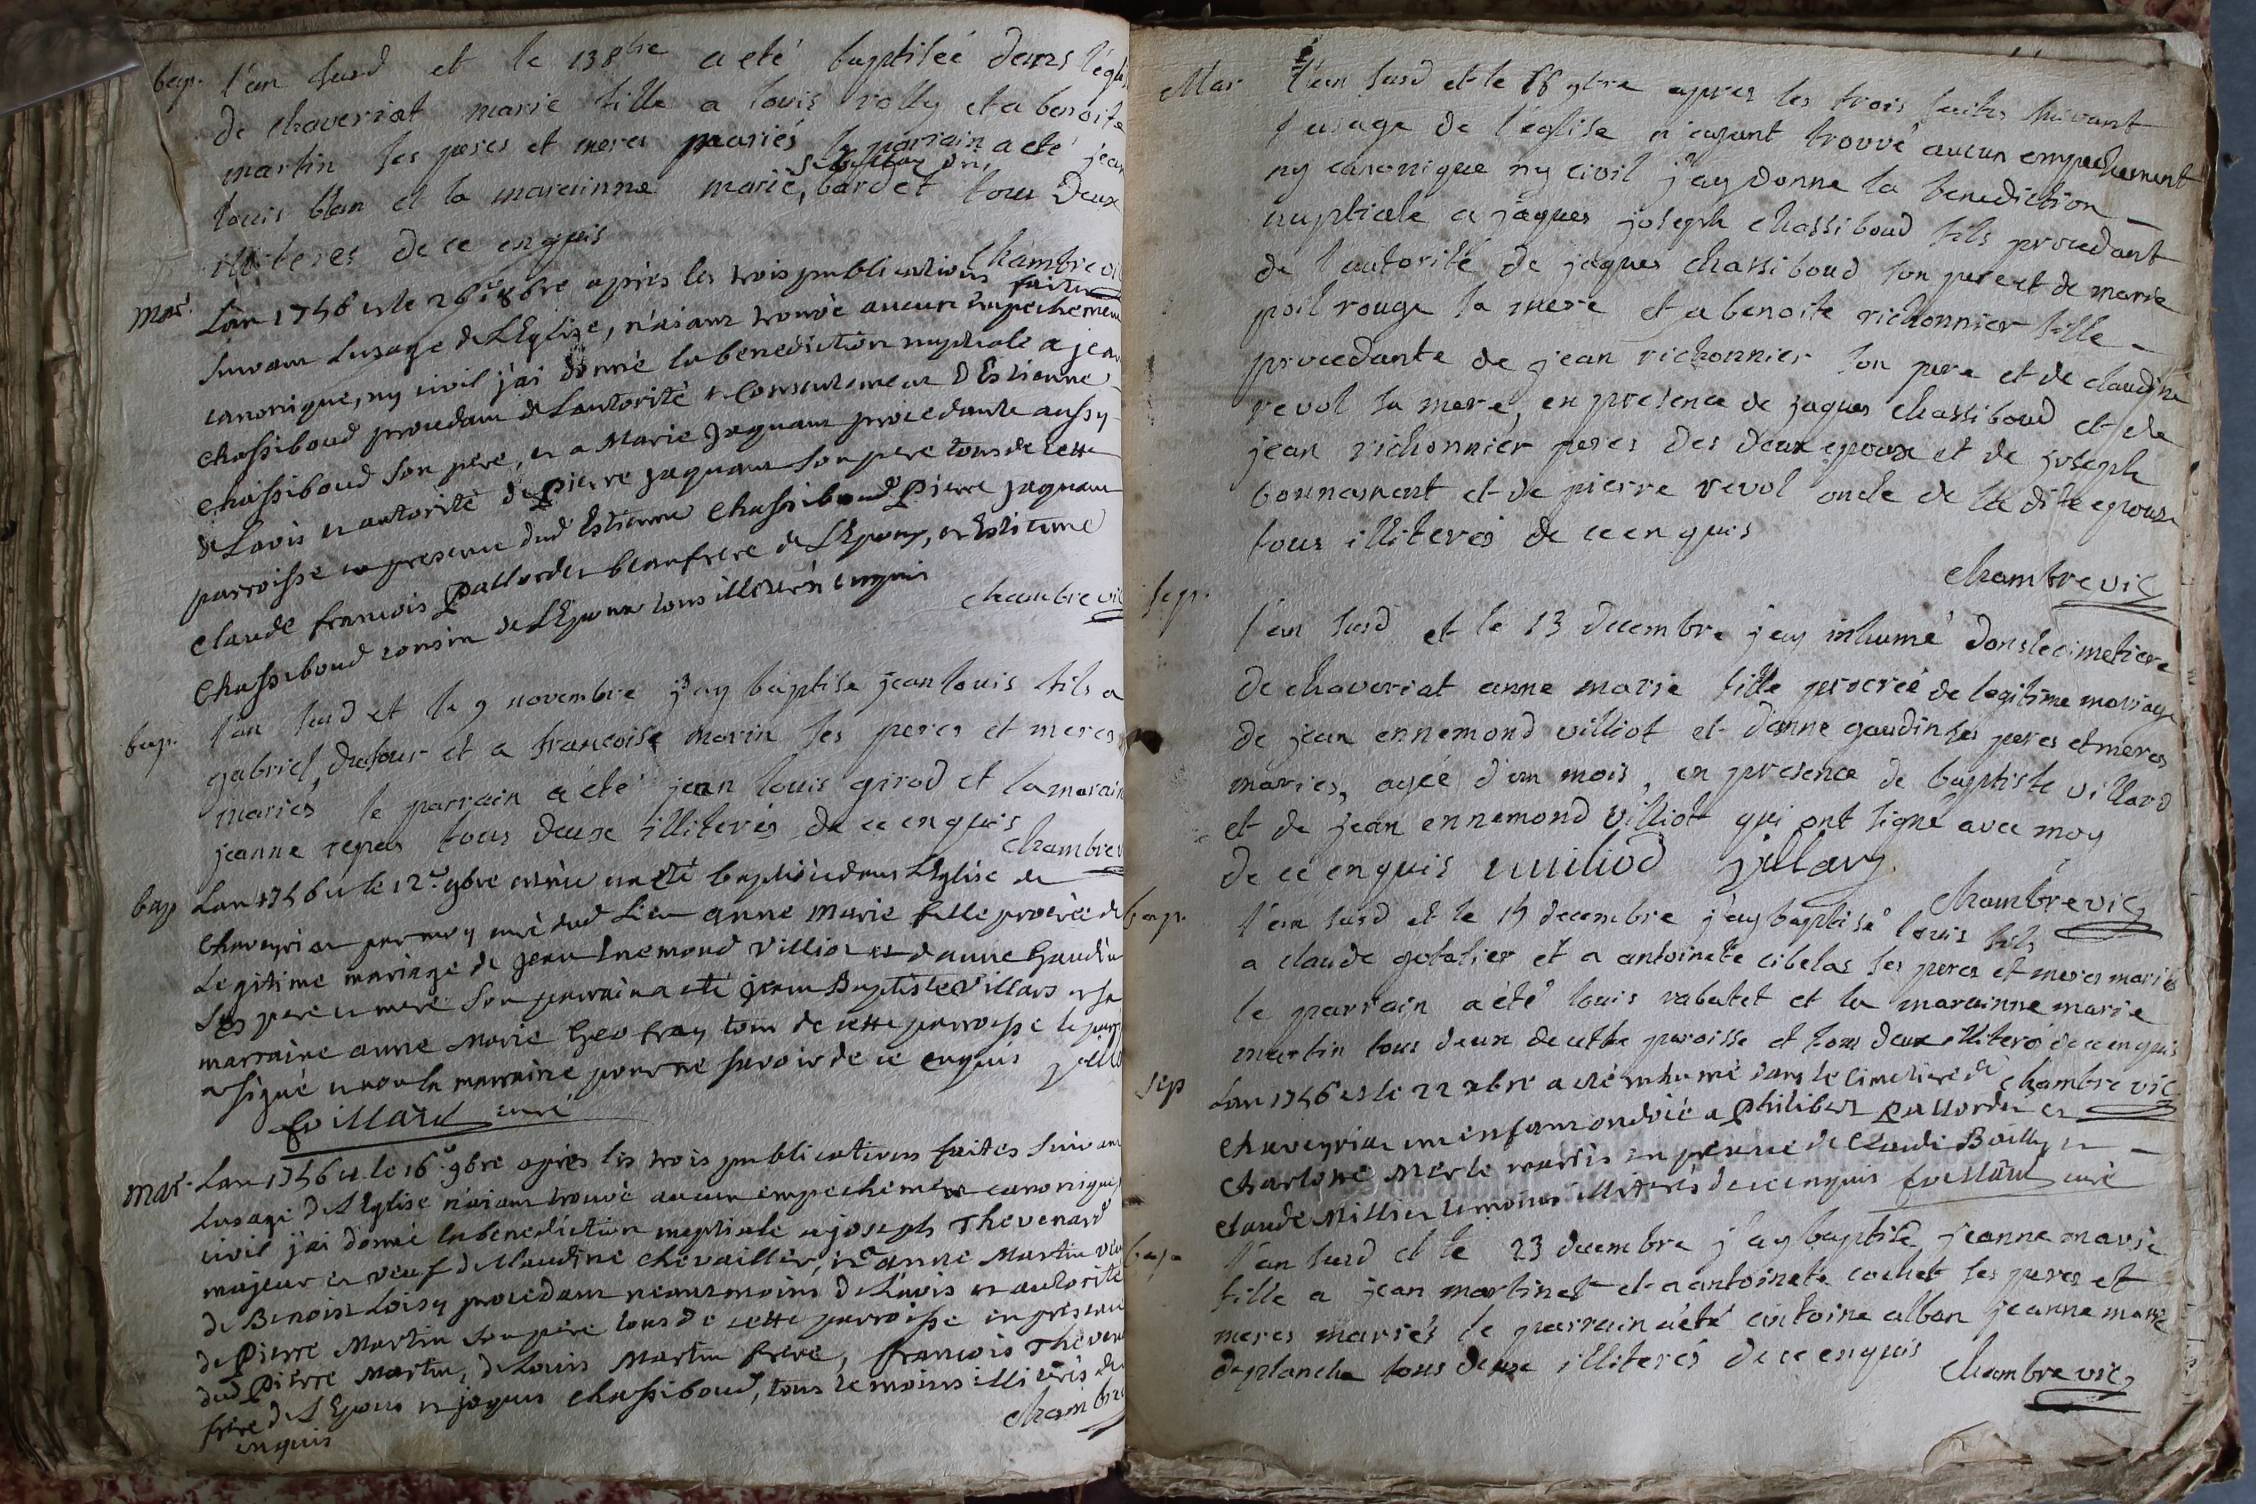 bap. l'an susd et le 13 8bre a eté baptiseé dans l'egl
de chaveriat marie fille a louis rolly et a benoite
martin ses peres et meres mariés le parrain a eté jean
louis blan et la marainne marie, bardet tous deux
illiteres de ce enquis
chambre vic
Mar. Lan 1746 et le 26e 8bre aprés les trois publications faites
suivant Lusage de LEglise, n'aiant trouvé aucun empechement
canonique, ny civil j'ai donné la benediction nuptiale a jean
chassiboud procedant de Lautorité et consentement d'Estienne
chassiboud son pere, et a Marie Jaquant procedante aussy
de Lavis et autorité de Pierre Jaquant son pere tous de cette
parroisse en presence dud Estienne chassiboud Pierre Jaquant
claude francois Pallordet beaufrere de LEpoux, et Estienne
chassiboud cousin de LEpoux tous illiterés enquis
chambre vic
bap. l'an susd et le 9 novembre j'ay baptise jean louis fils a
gabriel, dufour et a francoise morin ses peres et meres
mariés le parrain a été jean louis girod et la marain
jeanne repas tous deux illiterés de ce enquis
chambre v
bap Lan 1746 et le 12e 9bre est née et a eté baptisée dans LEglise de
chaveyriat par moy curé dud Lieu anne Marie fille procréée du
Legitime mariage de Jean Enemond Villiot et d'anne Gaudin
ses pere et mere son parrain a eté jean Baptiste Villars et sa
marraine anne Marie Geofray tous de cette parroisse le parr
a signé et non la marraine pour ne savoir de ce enquis
fvillard curé
Mar. Lan 1746 et le 16e 9bre aprés les trois publications faites suivant
Lusage de LEglise n'aiant trouvé aucun empechement canonique,
civil j'ai donné la benediction nuptiale a joseph Thevenard
majeur et veuf de Claudine chevaillier, et a anne Martin
de Benoist Loisy procedant neantmoins de L'avis et autorité
de Pierre Martin son pere tous de cette parroisse en presence
dud Pierre Martin, de Louis Martin frere, francois Theven
frere de LEpoux et jaques chassiboud, tous temoins illiterés de
enquis
chambre
Mar l'an susd et le 18 9bre apres les trois faites suivant
l'usage de l'eglise n'ayant trouvé aucun empechement
ny canonique ny civil j'ay donne la benediction
nuptiale a jaques joseph chassiboud fils procedant
de l'autorité de jaques chassiboud son pere et de marie
poil rouge sa mere et a benoite richonnier fille
procedante de jean richonnier son pere et de claudine
revol sa mere, en presence de jaques chassiboud et de
jean richonnier peres des deux epoux et de joseph
bonnamant et de pierre revol oncle de la dite epouse
tous illiterés de ce enquis
chambre vic
sep. l'an susd et le 13 decembre j'ay inhumé dans le cimetiere
de chaveriat anne marie fille procréé de legitime mariage
de jean ennemond villiot et d'anne gaudin ses peres et meres
maries, agée d'un mois, en presence de baptiste villard
et de jean ennemond villiot qui ont signé avec moy
de ce enquis
chambre vic
bap. l'an susd et le 14 decembre j'ay baptisé louis fils
a claude gotatier et a antoinete cibelas ses peres et meres mariés
le parrain a été louis rabutet et la marainne marie
martin tous deux de cette paroisse et tous deux illiteré de ce enquis
chambre vic
sep Lan 1746 et le 22 xbre a eté inhumé dans le cimetiere de
chaveyriat un enfant ondoié a Philibert Pallordet et
charlotte Merle mariés en presence de Claude Bailly et
claude Millier temoins illiterés de ce enquis fvillard curé
bap. l'an susd et le 23 decembre j'ay baptisé jeanne marie
fille a jean martinet et a antoinete cochet ses peres et
meres mariés le parrain a été antoine alban jeanne marie
deplanche tous deux illiterés de ce enquis
chambre vic